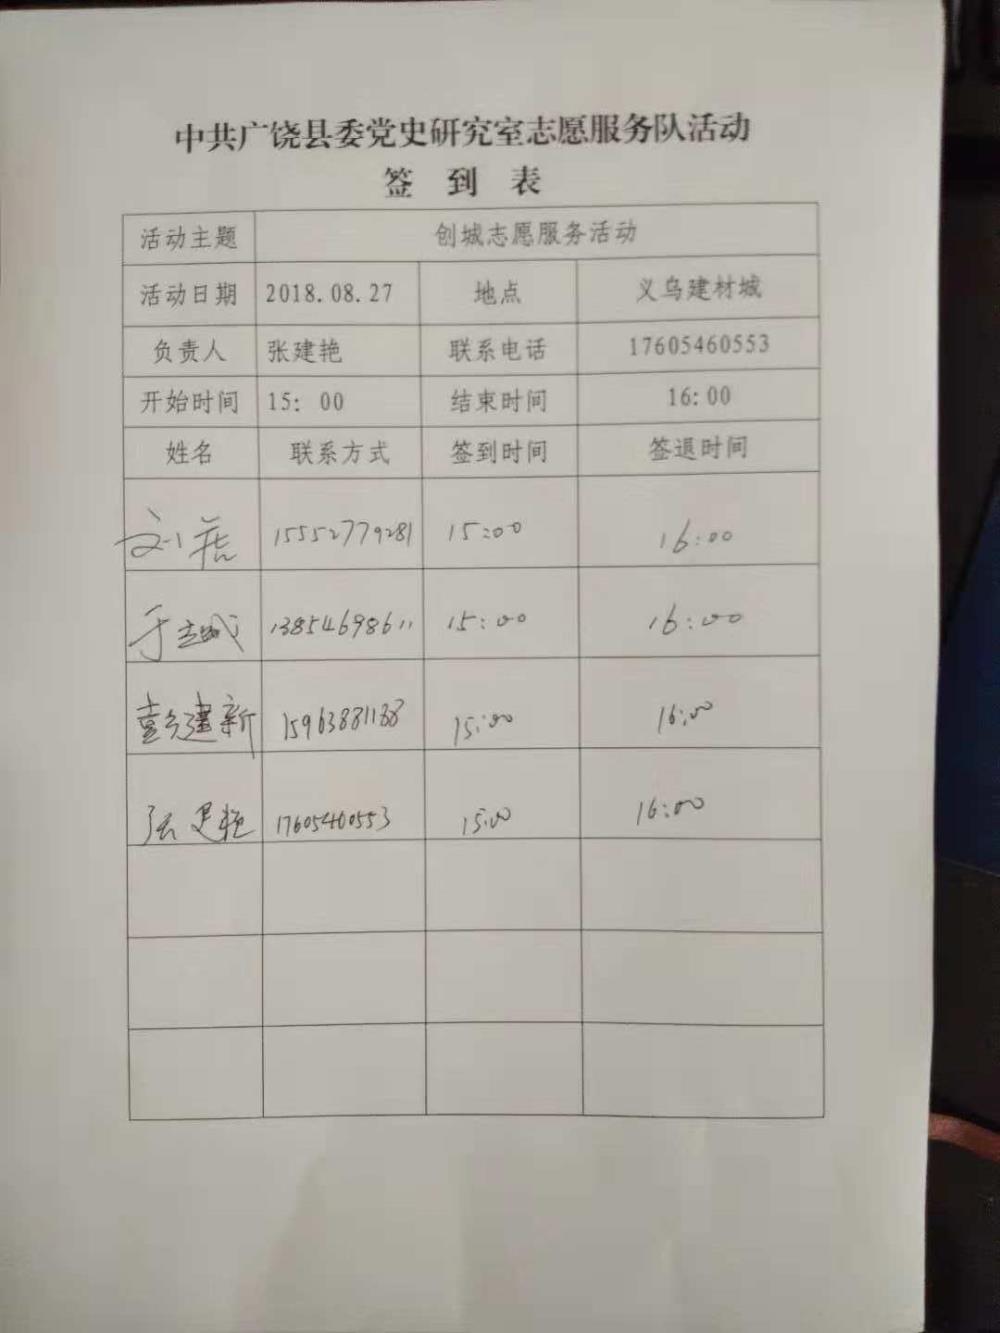 中共广饶县委党史研究室志愿服务队活动
签 到 表
活动主题 创城志愿服务活动
活动日期 2018.08.27 地点 义乌建材城
负责人 张建艳 联系电话 17605460553
开始时间 15: 00 结束时间 16:00
姓名 联系方式 签到时间 签退时间
刘 15552779281 15:00 16:00
于 13854698611 15:00 16:00
彭建新 15963881188 15:00 16:00
张建艳 17605460553 15:00 16:00